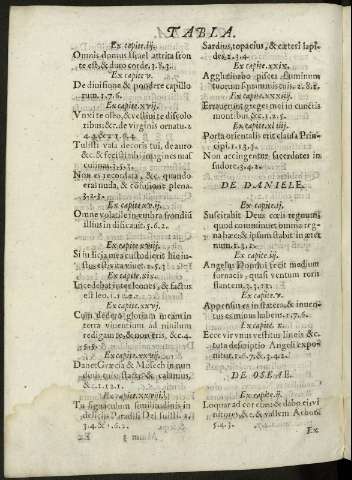 TABLA.
Ex capite.iij.
Omnis domus Israel attrita fron
te est, & duro corde. 3.8.3.
Ex capite v.
De diuisione & pondere capillo
rum. 1.7.6.
Ex capite.xvij.
Vnxi te oleo, & vestiui te discolo
ribus: &c. de virginis ornatu. 2
Tulisti vasa decoris tui, de auro
&c. & fecisti imagines mas
culinas. 3.5.3.
Non es recordata, &c. quando
eras nuda, & cōfusione plena.
Ex capite.
Omne volatile in vmbra frondiū
illius
Ex capite
Si iusticiam custodierit hic iu-
stus est vita viuet. 2.5.3
Ex capite.xix.
Incedebat inter leones, & factus
est leo.
Ex capite
Cum dedero gloriam meam in
terra viuentium ad nihilum
redigam te, & non eris, &c. 4.
Ex capite.xxvij.
Græcia & Mosoch in nun
dinis
&c. 1.12.1.
Ex capite.
Tu signaculum similitudinis in
deliciis Paradisi Dei fuisti.
3.4. & 1.6.2.
Mmm 3
Sardius, topacius, & cæteri lapi-
des. 2.3.4.
Ex capite.xxix.
Agglutinabo pisces fluminum
tuorum squammis tuis. 2.8.1.
Ex capite.xxxiiij.
Errauerunt greges mei in cunctis
montibus &c. 1.2.5.
Ex capite.xl iiij.
Porta orientalis erit clausa Prin-
cipi. 1.13.5.
Non accingentur sacerdotes in
sudore. 3.4.2.
DE DANIELE.
Ex capite.ij.
Suscitabit Deus cœli regnum
quod comminuet omnia reg-
na hæc: & ipsum stabit in æter
num. 1.3.1.
Ex capite.iij.
Angelus Domini fecit medium
fornacis, quasi ventum roris
flantem. 3.3.11.
Ex capite.v.
Appensus es in statera, & inuen-
tus es minus habens. 1.7.6.
Ex capite. x.
Ecce vir vnus vestitus lineis &c.
Tota descriptio Angeli expo-
nitur. 1.6.7. & 3.4.2.
DE OSEAE.
Ex capite.ij.
Loquar ad cor eius: & dabo ei vi
nitores, &c. & vallem Achor.
5.4.3.
Ex